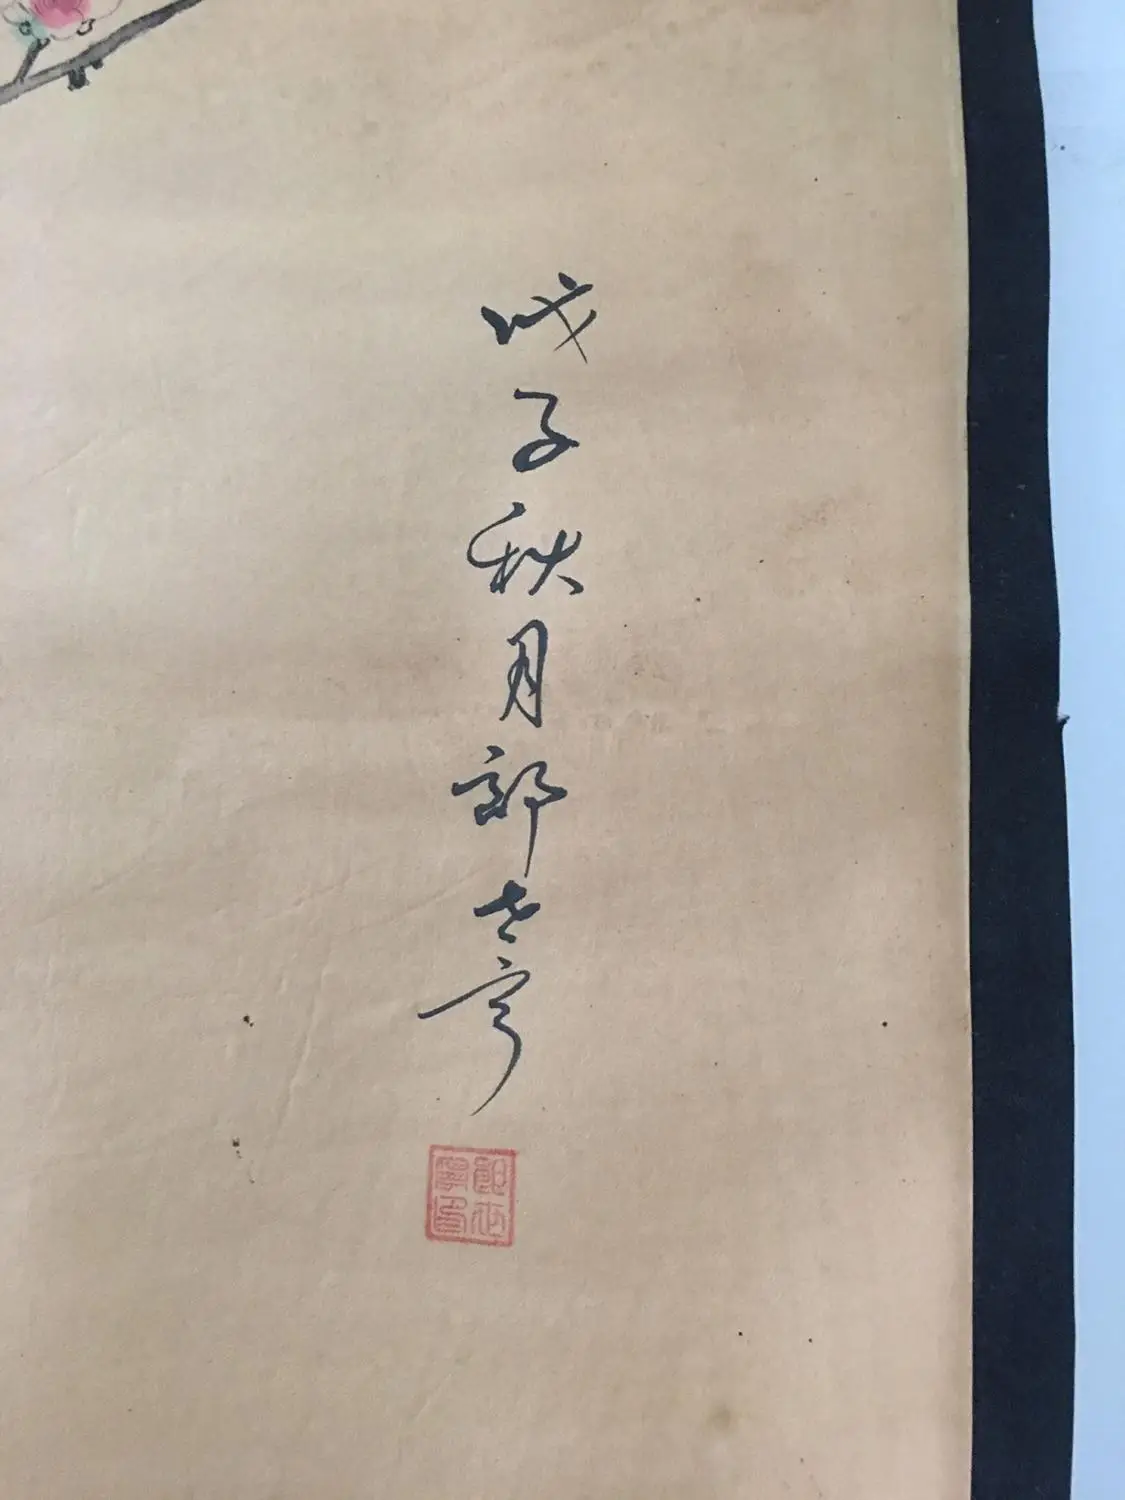 戊子秋月郎世宁
郎世寧印